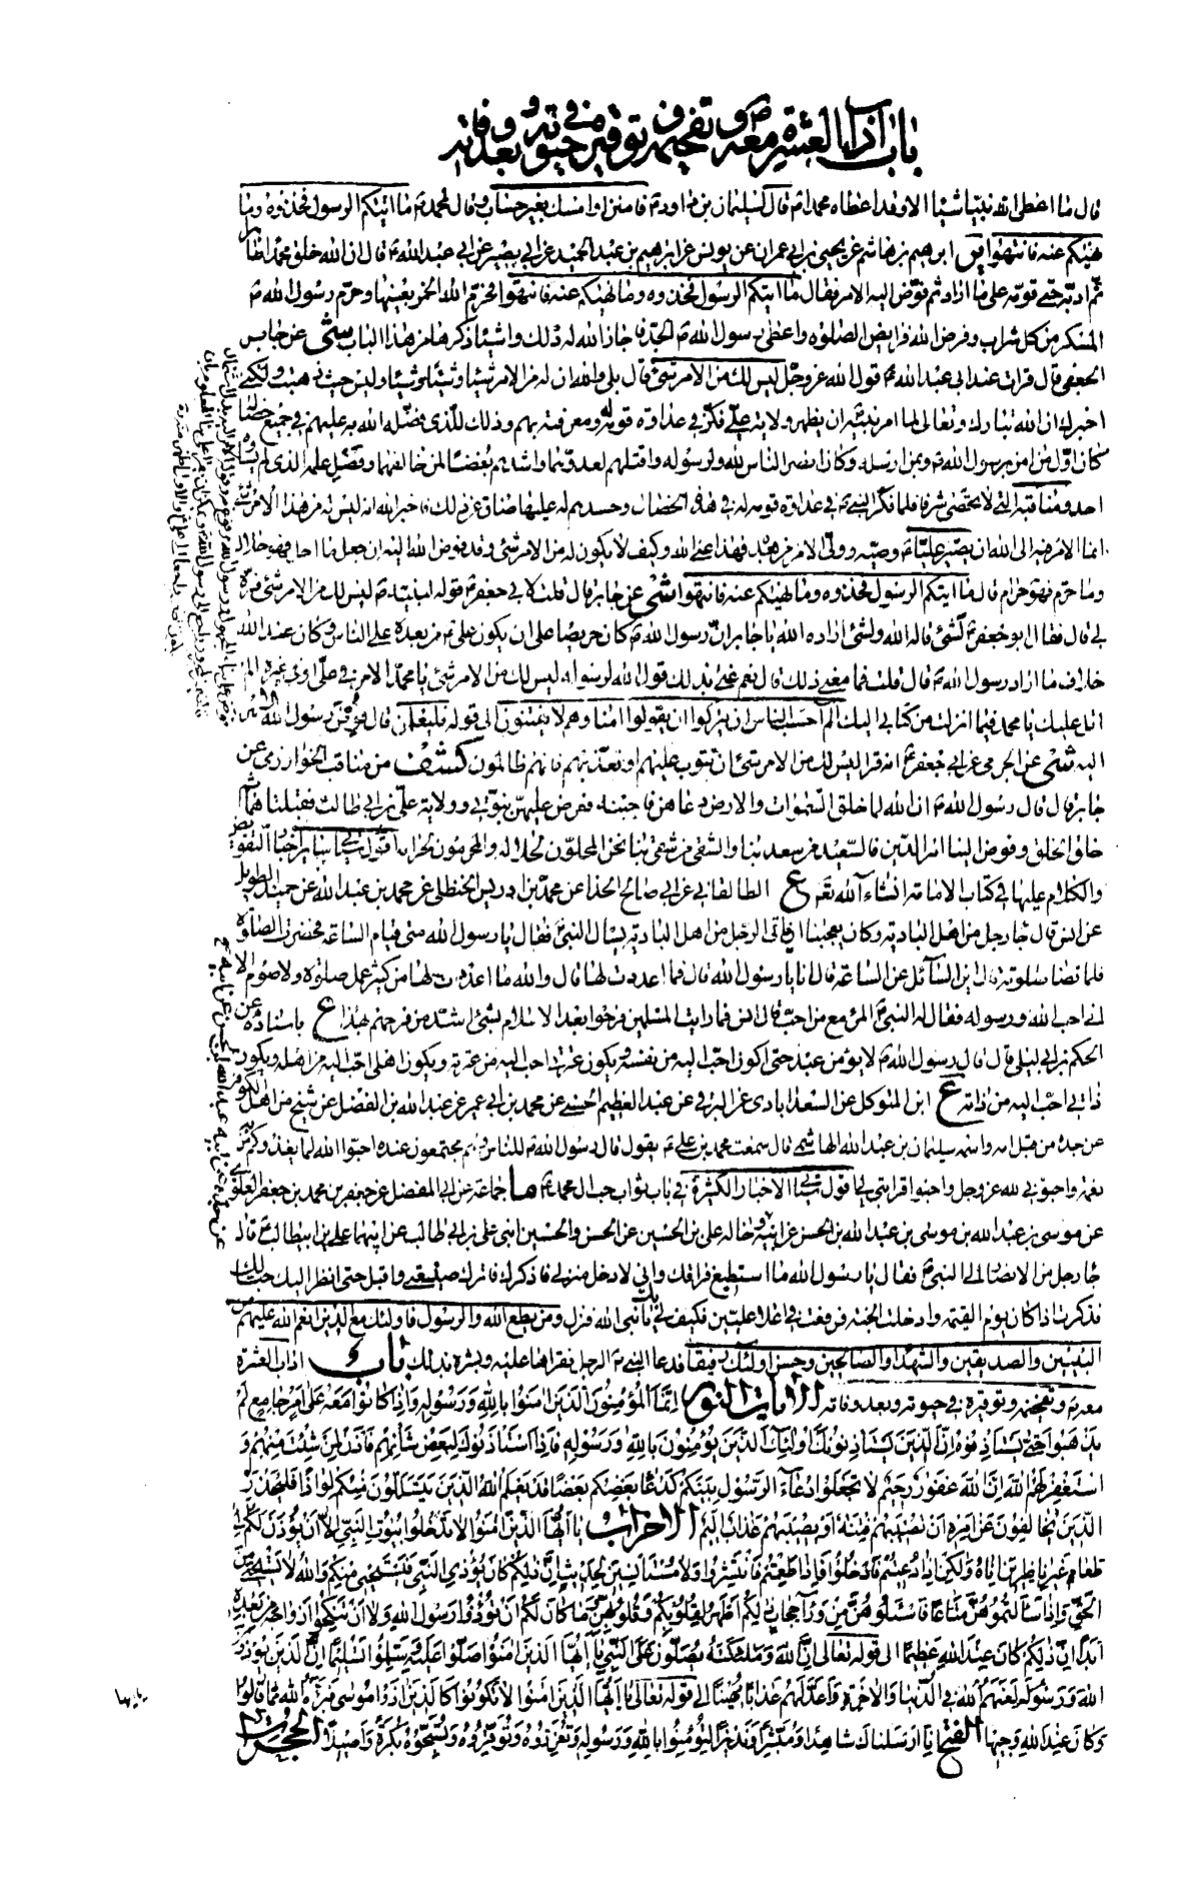 باب آداب العشرة معه وتفخيمه وتوقيره في حيوته وبعد وفاته
قال ما اعطى الله نبيا شيئا الا وقد اعطاه محمدا ص قال لسليمان بن داود ع فامنن او امسك بغير حساب وقال لمحمد ص ما اتيكم الرسول فخذوه وما
نهيكم عنه فانتهوا ير ابرهيم بن هاشم عن يحيى بن ابي عمران عن يونس عن ابرهيم بن عبد الحميد عن ابي بصير عن ابي عبد الله ع قال ان الله خلق محمدا طاهرا
ثم ادبه حتى قومه على ما اراد ثم فوض اليه الامر فقال ما اتيكم الرسول فخذوه وما نهيكم عنه فانتهوا فحرم الله الخمر بعينها وحرم رسول الله ص
المسكر من كل شراب وفرض الله فرايض الصلوة واعطى رسول الله ص الجد فاجاز الله له ذلك واشياء ذكرها من هذا الباب شى عن جابر
الجعفي قال قرات عند ابي عبد الله ع قول الله عز وجل ليس لك من الامر شئ قال بلى والله ان له من الامر شيئا وشيئا وشيئا وليس حيث ذهبت ولكني
اخبرك ان الله تبارك وتعالى لما امر نبيه ان يظهر ولاية علي فكر في عداوة قومه له ومعرفته بهم وذلك للذي فضله الله به عليهم في جميع خصاله
كان اول من امن برسول الله ص وبمن ارسله وكان انصر الناس لله ولرسوله واقتلهم لعدوهما واشدهم بغضا لمن خالفهما وفضل علمه الذي لم يساوه
احد ومناقبه التي لا يحصى شرفا فلما فكر النبي ص في عداوة قومه له في هذه الخصال وحسدهم له عليها ضاق عن ذلك فاخبر الله انه ليس له من هذا الامر شئ
انما الامر فيه الى الله ان يصير عليا ع وصيه وولي الامر من بعده فهذا عنى الله وكيف لا يكون له من الامر شئ وقد فوض الله اليه ان جعل ما احل فهو حلال
وما حرم فهو حرام قال ما اتيكم الرسول فخذوه وما نهيكم عنه فانتهوا شى عن جابر قال قلت لابي جعفر ع قوله لنبيه ص ليس لك من الامر شئ فسره
لي قال فقال ابو جعفر ع لشئ قاله الله ولشئ اراده الله يا جابر ان رسول الله ص كان حريصا على ان يكون علي ع من بعده على الناس وكان عند الله
خلاف ما اراد رسول الله ص قال قلت فما معنى ذلك قال نعم عنى بذلك قول الله لرسوله ليس لك من الامر شئ يا محمد الامر في علي او في غيره الم
اتل عليك يا محمد فيما انزلت من كتابي اليك الم احسب الناس ان يتركوا ان يقولوا امنا وهم لا يفتنون الى قوله فليعلمن قال فوض رسول الله الامر
اليه شى عن الجرمي عن ابي جعفر ع انه قرا ليس لك من الامر شئ ان تتوب عليهم او تعذبهم فانهم ظالمون كشف من مناقب الخوارزمي عن
جابر قال قال رسول الله ص ان الله لما خلق السموات والارض دعاهن فاجبنه فعرض عليهن نبوتي وولاية علي بن ابي طالب فقبلتاهما ثم
خلق الخلق وفوض الينا امر الدين فالسعيد من سعد بنا والشقي من شقي بنا نحن المحلون لحلاله والمحرمون لحرامه اقول سياتي ساير اخبار التفويض
والكلام عليها في كتاب الامامة انشاء الله تعالى ع الطالقاني عن ابي صالح الحذا عن محمد بن ادريس الحنظلي عن محمد بن عبد الله عن حميد الطويل
عن انس قال جاء رجل من اهل البادية وكان يعجبنا ان ياتي الرجل من اهل البادية يسال النبي ص فقال يا رسول الله متى قيام الساعة فحضرت الصلوة
فلما قضا صلوته قال اين السائل عن الساعة قال انا يا رسول الله قال فما اعددت لها قال والله ما اعددت لها من كثير عمل صلوة ولا صوم الا
اني احب الله ورسوله فقال له النبي ص المرء مع من احب قال انس فما رايت المسلمين فرحوا بعد الاسلام بشئ اشد من فرحهم بهذا ع باسناده عن
الحكم بن ابي ليلى قال قال رسول الله ص لا يؤمن عبد حتى اكون احب اليه من نفسه ويكون عترتي احب اليه من عترته ويكون اهلي احب اليه من اهله ويكون
ذاتي احب اليه من ذاته ع ابن المتوكل عن السعدابادي عن البرقي عن عبد العظيم الحسني عن محمد بن ابي عمير عن عبد الله بن الفضل عن شيخ من اهل الكوفة
عن جده من قبل امه واسمه سليمان بن عبد الله الهاشمي قال سمعت محمد بن علي ع يقول قال رسول الله ص للناس وهم مجتمعون عنده احبوا الله لما يغذوكم من
نعمه واحبوني لله عز وجل واحبوا قرابتي لي اقول سياتي الاخبار الكثيرة في باب ثواب حب ال محمد ع ما جماعة عن ابي المفضل عن جعفر بن محمد بن جعفر العلوي
عن موسى بن عبد الله بن موسى بن عبد الله بن الحسن عن ابيه وخاله علي بن الحسين عن الحسن والحسين ابني علي بن ابي طالب عن ابيهما علي بن ابيطالب ع قال
جاء رجل من الانصار الى النبي ص فقال يا رسول الله ما استطيع فراقك واني لادخل منزلي فاذكرك فاترك ضيعتي واقبل حتى انظر اليك حبا لك
فذكرت اذا كان يوم القيمة وادخلت الجنة فرفعت في اعلا عليين فكيف لي بك يا نبي الله فنزل ومن يطع الله والرسول فاولئك مع الذين انعم الله عليهم من
النبيين والصديقين والشهداء والصالحين وحسن اولئك رفيقا فدعا النبي ص الرجل فقراها عليه وبشره بذلك باب اداب العشرة
معه ص وتفخيمه وتوقيره في حيوته وبعد وفاته الايات النور انما المؤمنون الذين امنوا بالله ورسوله واذا كانوا معه على امر جامع لم
يذهبوا حتى يستاذنوه ان الذين يستاذنونك اولئك الذين يؤمنون بالله ورسوله فاذا استاذنوك لبعض شانهم فاذن لمن شئت منهم و
استغفر لهم الله ان الله غفور رحيم لا تجعلوا دعاء الرسول بينكم كدعاء بعضكم بعضا قد يعلم الله الذين يتسللون منكم لواذا فليحذر
الذين يخالفون عن امره ان تصيبهم فتنة او يصيبهم عذاب اليم الاحزاب يا ايها الذين امنوا لا تدخلوا بيوت النبي الا ان يؤذن لكم الى
طعام غير ناظرين اناه ولكن اذا دعيتم فادخلوا فاذا طعمتم فانتشروا ولا مستانسين لحديث ان ذلكم كان يؤذي النبي فيستحيي منكم والله لا يستحيي من
الحق واذا سالتموهن متاعا فاسئلوهن من وراء حجاب ذلكم اطهر لقلوبكم وقلوبهن وما كان لكم ان تؤذوا رسول الله ولا ان تنكحوا ازواجه من بعده
ابدا ان ذلكم كان عند الله عظيما الى قوله تعالى ان الله وملئكته يصلون على النبي يا ايها الذين امنوا صلوا عليه وسلموا تسليما ان الذين يؤذون
الله ورسوله لعنهم الله في الدنيا والاخرة واعد لهم عذابا مهينا الى قوله تعالى يا ايها الذين امنوا لا تكونوا كالذين اذوا موسى فبراه الله مما قالوا
وكان عند الله وجيها الفتح انا ارسلناك شاهدا ومبشرا ونذيرا لتؤمنوا بالله ورسوله وتعزروه وتوقروه وتسبحوه بكرة واصيلا الحجرات
عن جده عن ابيه عبد الله بن الحسن عن ابيه
يا ايها